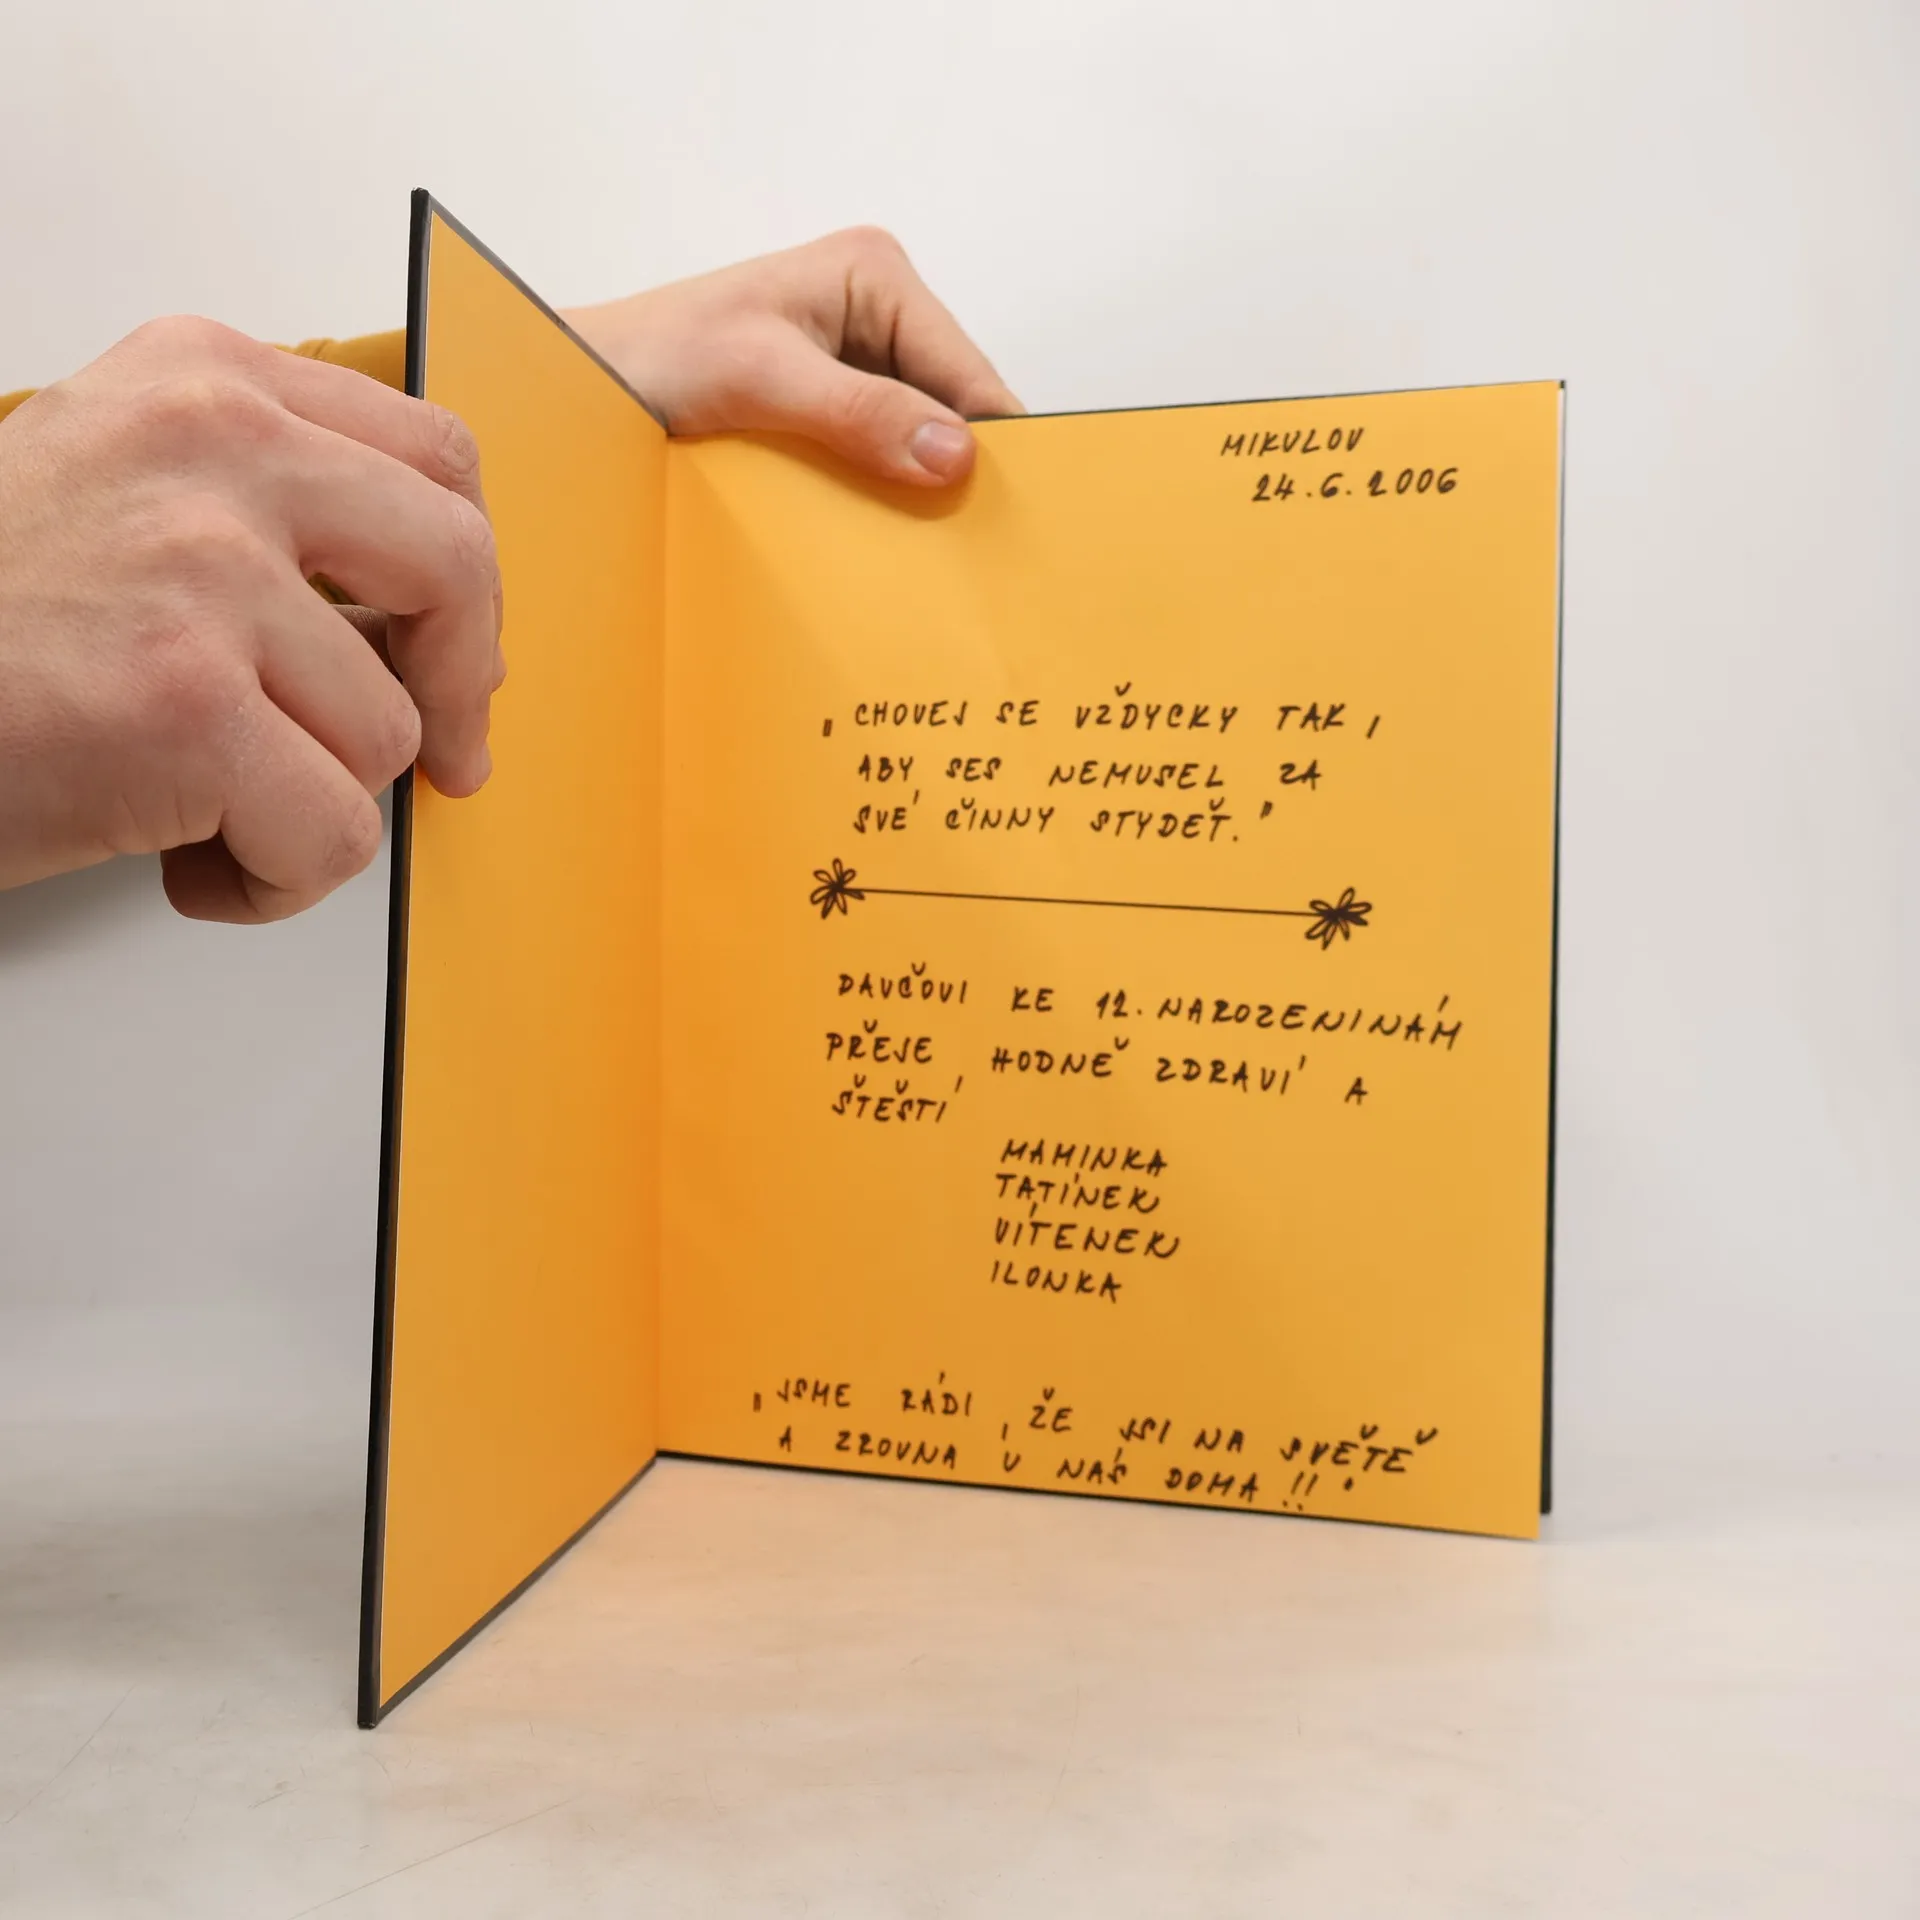 MIKULOV
24.6.2006
„CHOVEJ SE VŽDYCKY TAK,
ABY SES NEMUSEL ZA
SVÉ ČINNY STYDEŤ."
DAVČOVI KE 12. NAROZENINÁM
PŘEJE HODNĚ ZDRAVÍ A
ŠTĚSTÍ
MAMINKA
TATÍNEK
VÍTENEK
ILONKA
„JSME RÁDI, ŽE JSI NA SVĚTĚ
A ZROVNA U NÁS DOMA!!"